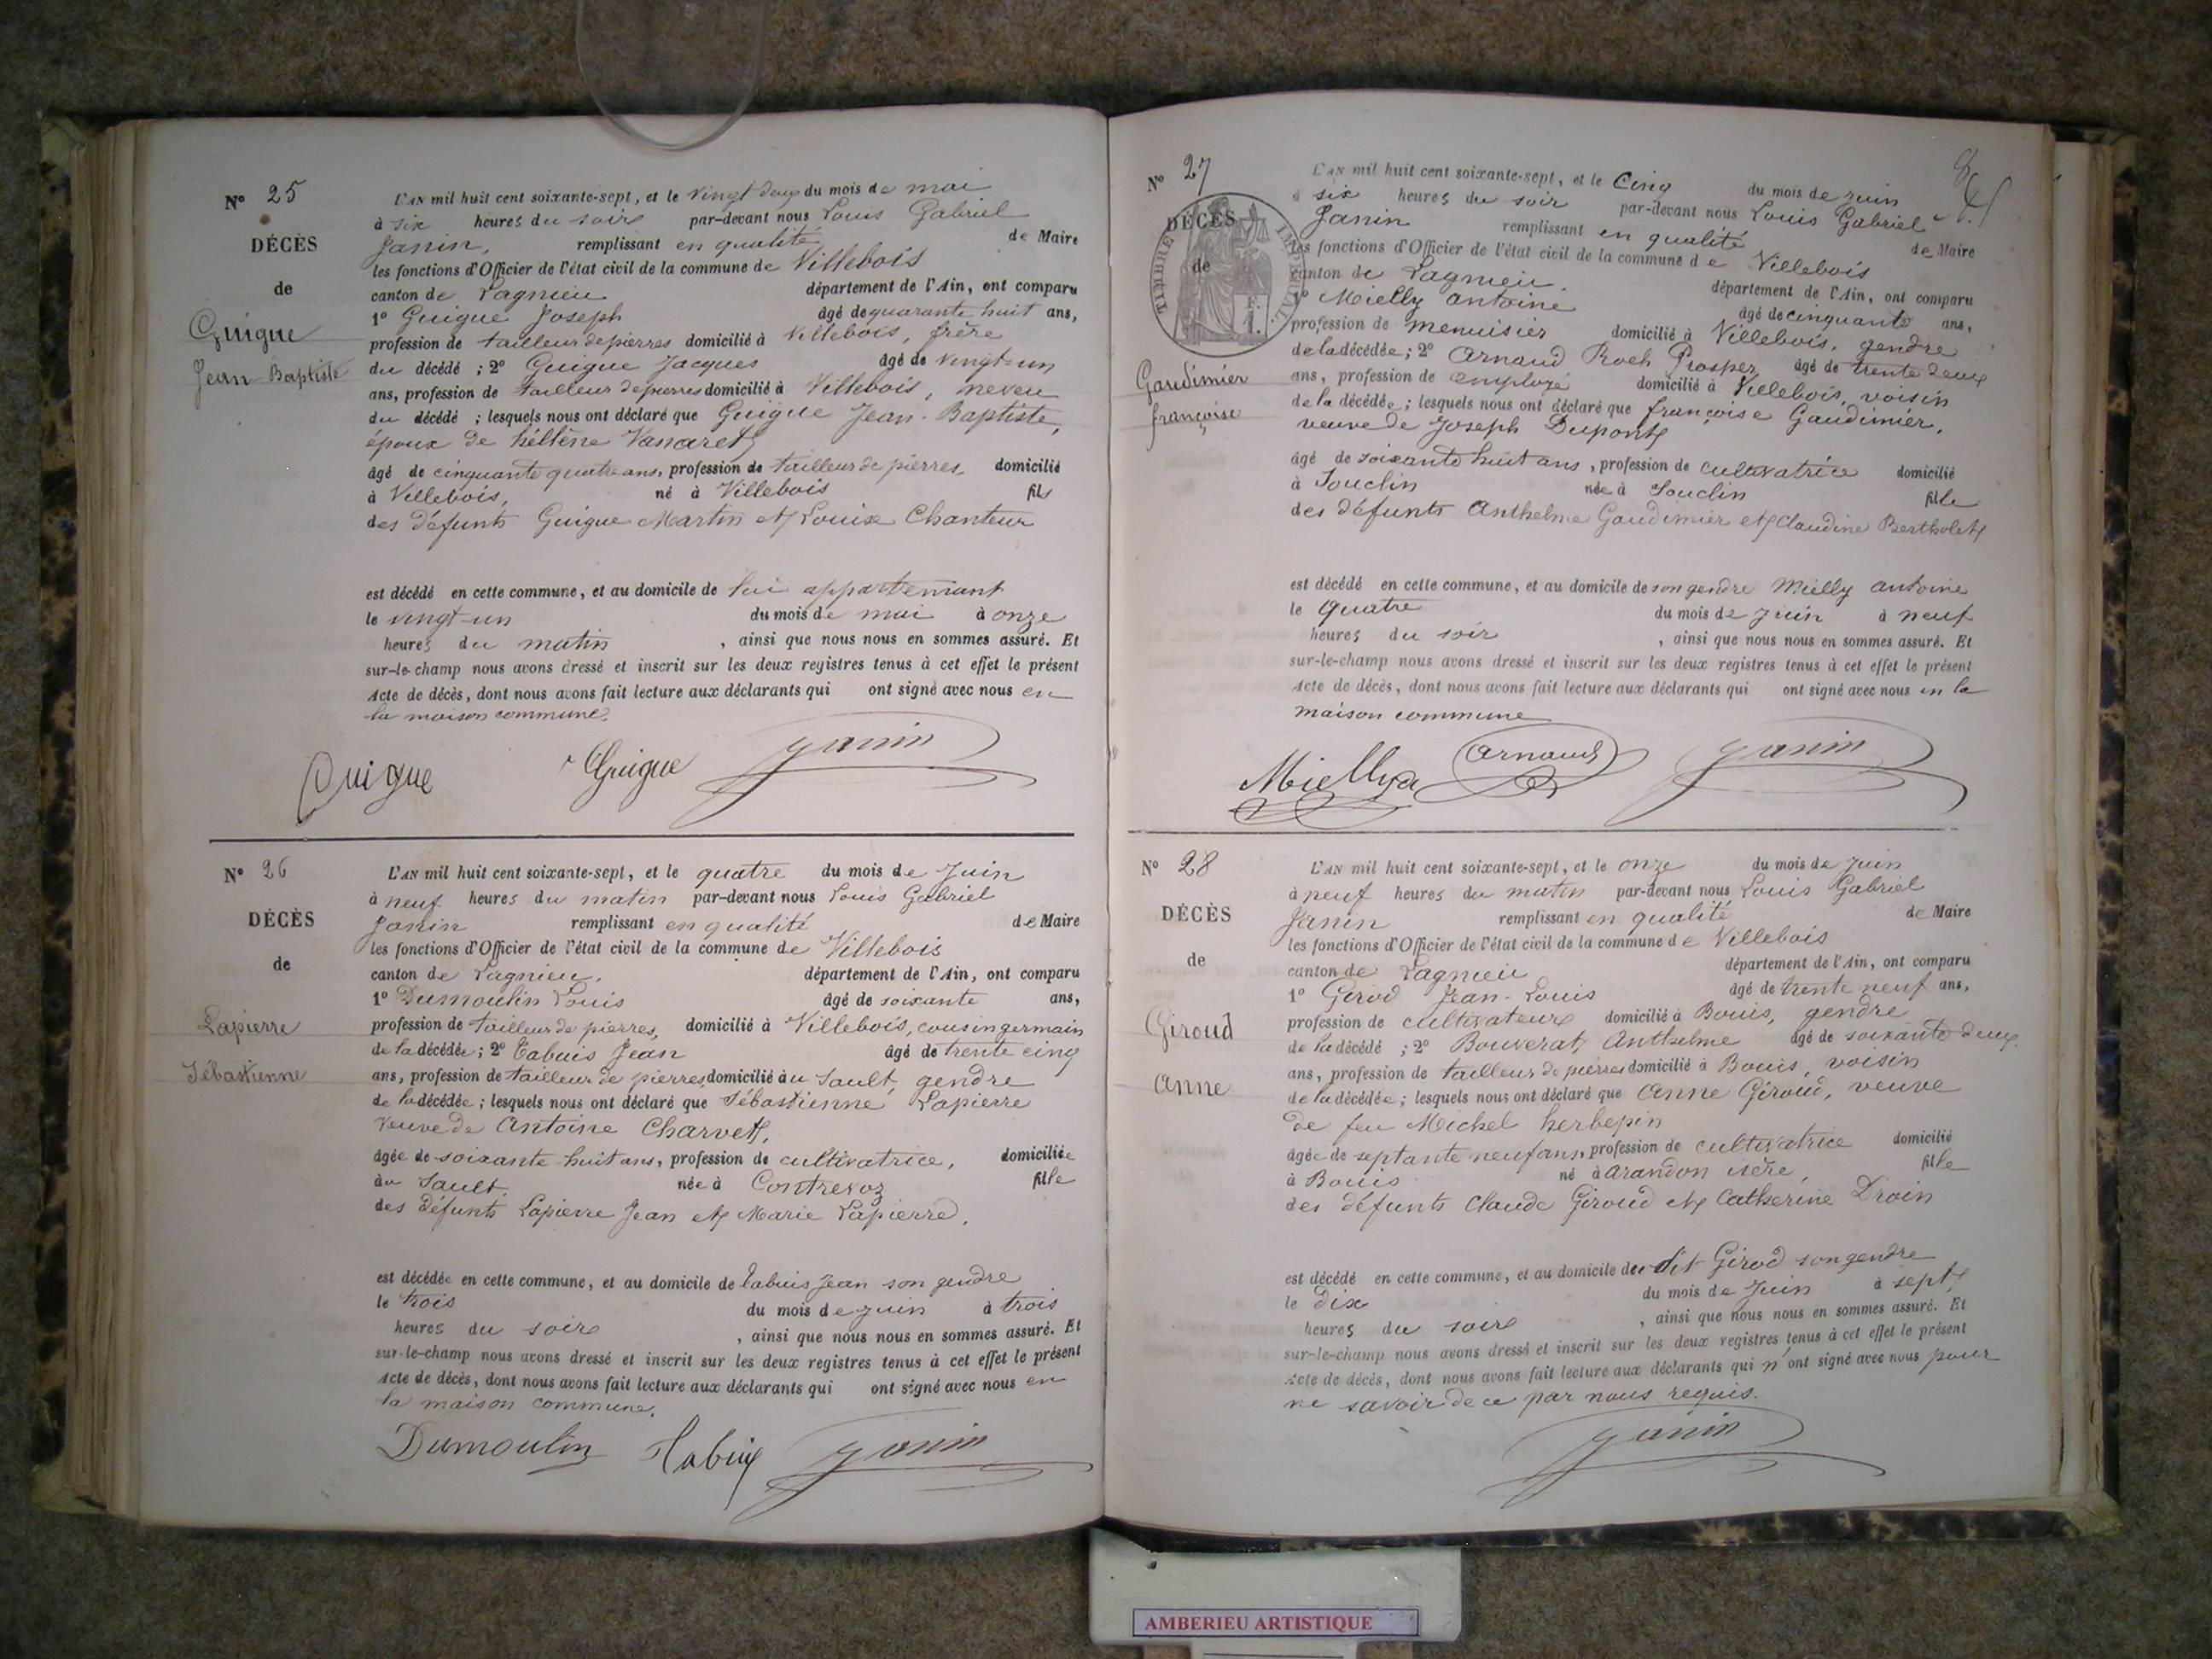 N° 25
DÉCÈS
de
Guigue
Jean-Baptiste
L'AN mil huit cent soixante-sept, et le vingt deux du mois de mai
à six heures du soir par-devant nous Louis Gabriel
Janin, remplissant en qualité de Maire
les fonctions d'Officier de l'état civil de la commune de Villebois
canton de Lagnieu département de l'Ain, ont comparu
1° Guigue Joseph âgé de quarante huit ans,
profession de tailleur de pierres domicilié à Villebois, frère
du décédé ; 2° Guigue Jacques âgé de vingt-un
ans, profession de tailleur de pierres domicilié à Villebois, neveu
du décédé ; lesquels nous ont déclaré que Guigue Jean-Baptiste,
époux de hélène Vanaret
âgé de cinquante quatre ans, profession de tailleur de pierres, domicilié
à Villebois, né à Villebois fils
des défunts Guigue Martin et Louise Chanteur
est décédé en cette commune, et au domicile de lui appartenant
le vingt-un du mois de mai à onze
heures du matin , ainsi que nous nous en sommes assuré. Et
sur-le-champ nous avons dressé et inscrit sur les deux registres tenus à cet effet le présent
Acte de décès, dont nous avons fait lecture aux déclarants qui ont signé avec nous en
la maison commune.
Guigue Guigue Janin
N° 26
DÉCÈS
de
Lapierre
Sébastienne
L'AN mil huit cent soixante-sept, et le quatre du mois de Juin
à neuf heures du matin par-devant nous Louis Gabriel
Janin remplissant en qualité de Maire
les fonctions d'Officier de l'état civil de la commune de Villebois
canton de Lagnieu, département de l'Ain, ont comparu
1° Dumoulin Louis âgé de soixante ans,
profession de tailleur de pierres, domicilié à Villebois, cousin germain
de la décédée ; 2° Tabuis Jean âgé de trente cinq
ans, profession de tailleur de pierres, domicilié au Sault, gendre
de la décédée ; lesquels nous ont déclaré que Sébastienne Lapierre
veuve de Antoine Charvet,
âgée de soixante-huit ans, profession de cultivatrice, domiciliée
au Sault née à Contrevoz fille
des défunts Lapierre Jean et Marie Lapierre,
est décédée en cette commune, et au domicile de Tabuis Jean son gendre
le trois du mois de juin à trois
heures du soir , ainsi que nous nous en sommes assuré. Et
sur-le-champ nous avons dressé et inscrit sur les deux registres tenus à cet effet le présent
Acte de décès, dont nous avons fait lecture aux déclarants qui ont signé avec nous en
la maison commune.
Dumoulin Tabuis Janin
N° 27
DÉCÈS
de
TIMBRE IMPÉRIAL
Gaudimier
françoise
L'AN mil huit cent soixante-sept, et le Cinq du mois de juin
à six heures du soir par-devant nous Louis Gabriel
Janin remplissant en qualité de Maire
les fonctions d'Officier de l'état civil de la commune de Villebois
canton de Lagnieu. département de l'Ain, ont comparu
1° Mielly antoine âgé de cinquante ans,
profession de menuisier domicilié à Villebois, gendre
de la décédée ; 2° Arnaud Roch Prosper âgé de trente deux
ans, profession de employé domicilié à Villebois, voisin
de la décédée ; lesquels nous ont déclaré que françoise Gaudimier,
veuve de Joseph Dupont
âgé de soixante huit ans, profession de cultivatrice domicilié
à Souclin née à Souclin fille
des défunts Anthelme Gaudimier et Claudine Bertholet
est décédé en cette commune, et au domicile de son gendre Mielly antoine
le quatre du mois de juin à neuf
heures du soir , ainsi que nous nous en sommes assuré. Et
sur-le-champ nous avons dressé et inscrit sur les deux registres tenus à cet effet le présent
Acte de décès, dont nous avons fait lecture aux déclarants qui ont signé avec nous en la
maison commune
Mielly Arnaud Janin
N° 28
DÉCÈS
de
Giroud
Anne
L'AN mil huit cent soixante-sept, et le onze du mois de juin
à neuf heures du matin par-devant nous Louis Gabriel
Janin remplissant en qualité de Maire
les fonctions d'Officier de l'état civil de la commune de Villebois
canton de Lagnieu département de l'Ain, ont comparu
1° Girod Jean-Louis âgé de trente neuf ans,
profession de cultivateur domicilié à Bouis, gendre
de la décédé ; 2° Bouverat, Anthelme âgé de soixante deux
ans, profession de tailleur de pierres domicilié à Bouis, voisin
de la décédée ; lesquels nous ont déclaré que Anne Giroud, veuve
de feu Michel herbepin
âgée de septante neuf ans, profession de cultivatrice domicilié
à Bouis né à Arandon isère, fille
des défunts Claude Giroud et Catherine Droin
est décédé en cette commune, et au domicile du dit Girod son gendre
le dix du mois de Juin à sept
heures du soir , ainsi que nous nous en sommes assuré. Et
sur-le-champ nous avons dressé et inscrit sur les deux registres tenus à cet effet le présent
Acte de décès, dont nous avons fait lecture aux déclarants qui n'ont signé avec nous pour
ne savoir de ce par nous requis.
Janin
AMBERIEU ARTISTIQUE